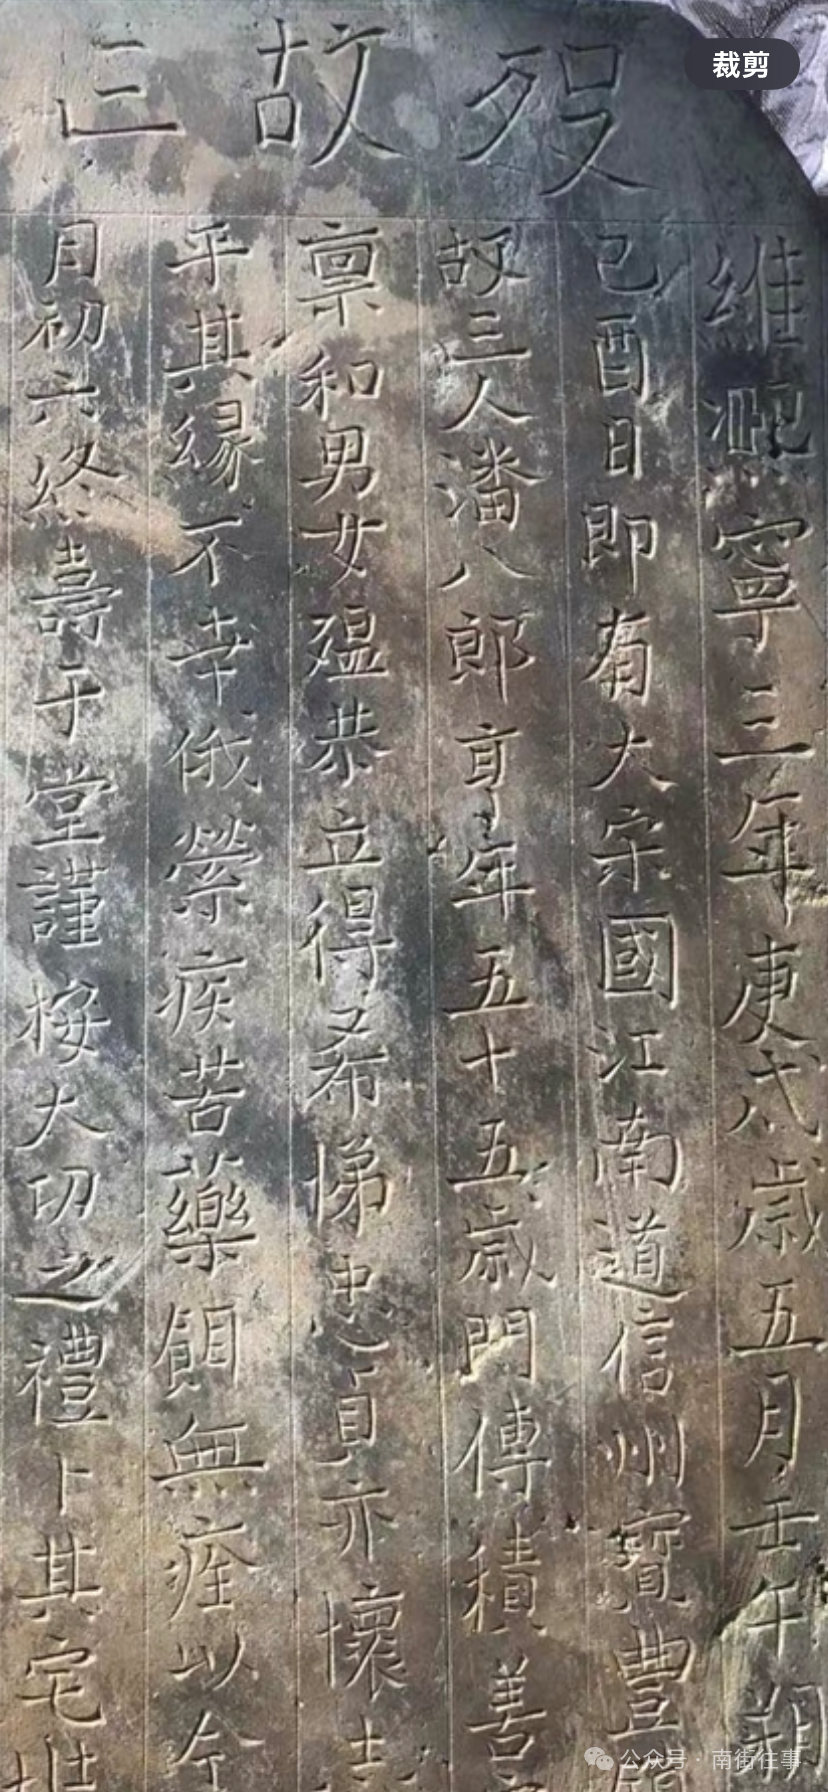 裁剪
歿故亡
維熈寧三年庚戌歲五月壬午朔
己酉日即有大宋國江南道信州寶豐
故亡人潘八郎享年五十五歲門傳積善
稟和男女温恭立得希悌忠貞亦懷
乎其緣不幸俄縈疾苦藥餌無痊以今
月初六終壽于堂謹按大切之禮卜其宅
公众号 · 南街往事